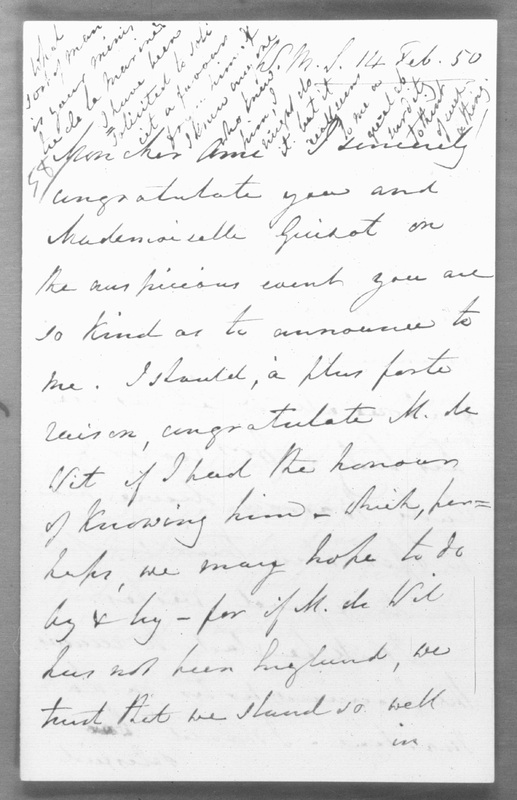 What
sort of man
is your minis
tre de la Marine?
I have been
solicited to soli
cit a favour
from him & if
I knew any one
who knew
him, I
might do
it but it
seems
to me a
great ab
surdity
to think
of such
a thing
W. M. S. 14 Feb. 50
Mon cher Ami I sincerely
congratulate you and
Mademoiselle Guizot on
the auspicious event you are
so kind as to announce to
me. I should, à plus forte
raison, congratulate M. de
Wit if I had the honour
of knowing him – which, per=
haps, we may hope to do
by & by – for if M. de Wit
has not seen England, we
trust that we stand so well
in